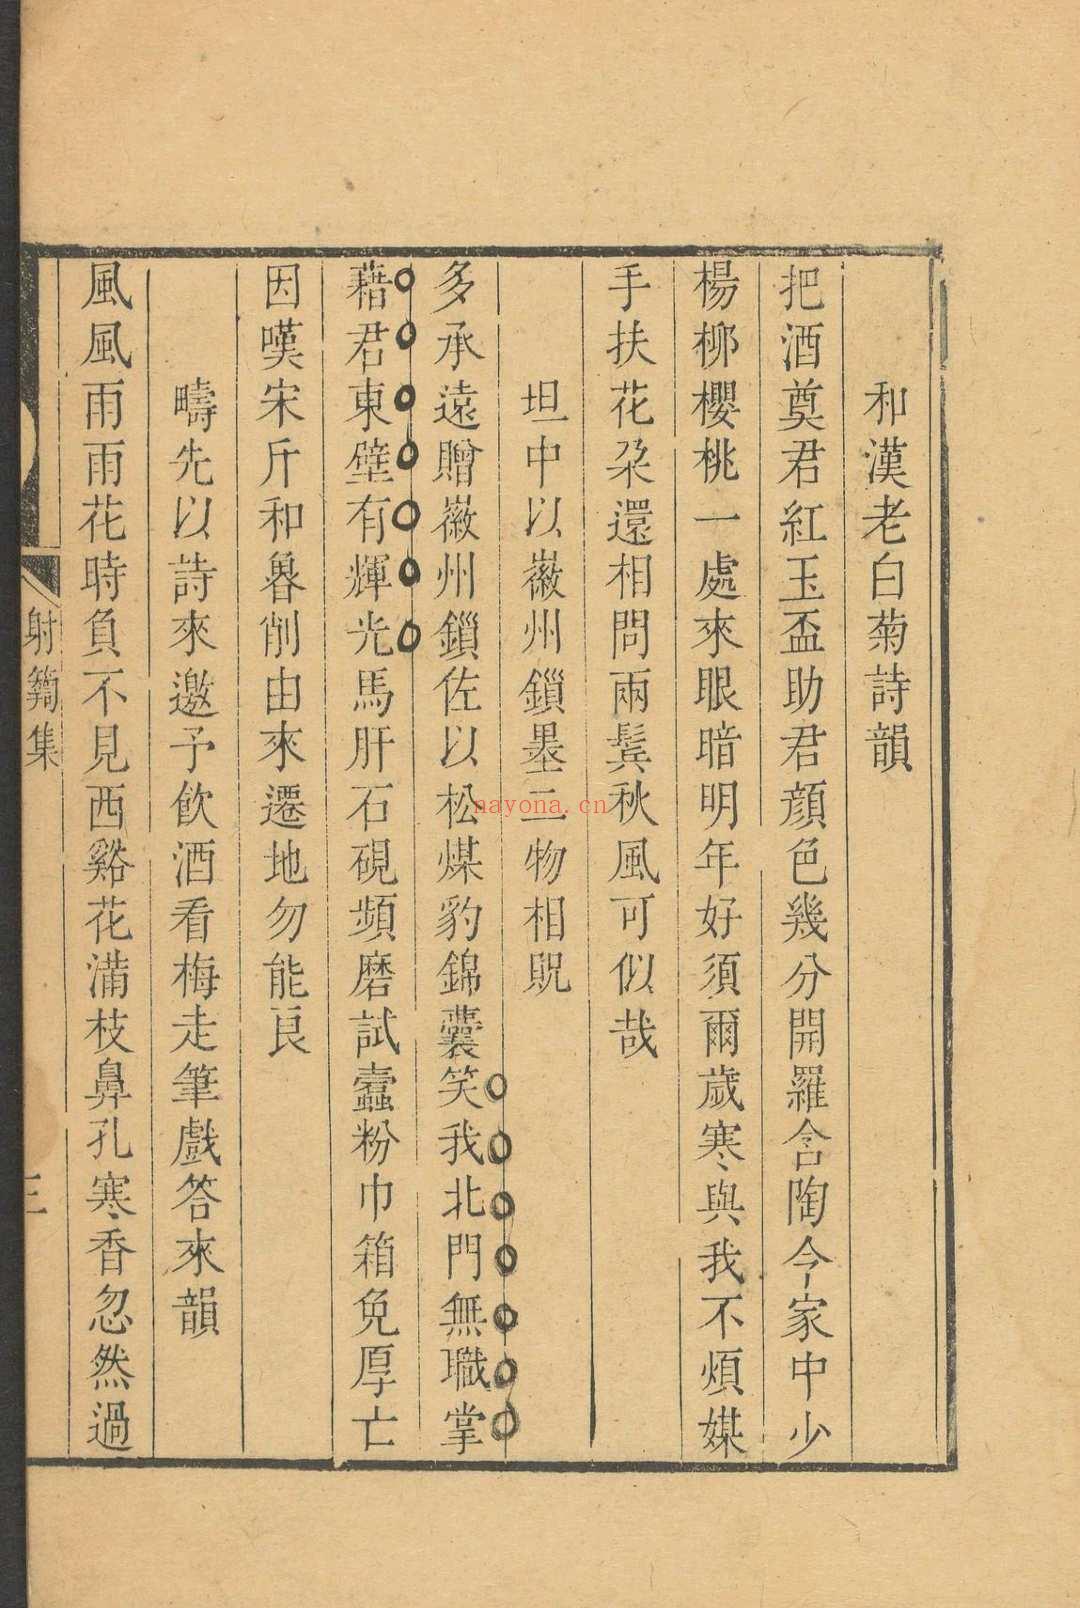 和漢老白菊詩韻
把酒奠君紅玉盃助君顔色幾分開羅含陶令家中少
楊柳櫻桃一處來眼暗明年好須爾歲寒與我不煩媒
手扶花朶還相問兩鬂秋風可似哉
坦中以徽州鎻墨二物相貺
多承遠贈徽州鎻佐以松煤豹錦囊笑我北門無職掌
藉君東壁有輝光馬肝石硯頻磨試蠧粉巾箱免厚亡
因嘆宋斤和魯削由來遷地勿能良
疇先以詩來邀予飲酒看梅走筆戲答來韻
風風雨雨花時負不見西谿花滿枝鼻孔寒香忽然過
射簕集
三
nayona.cn